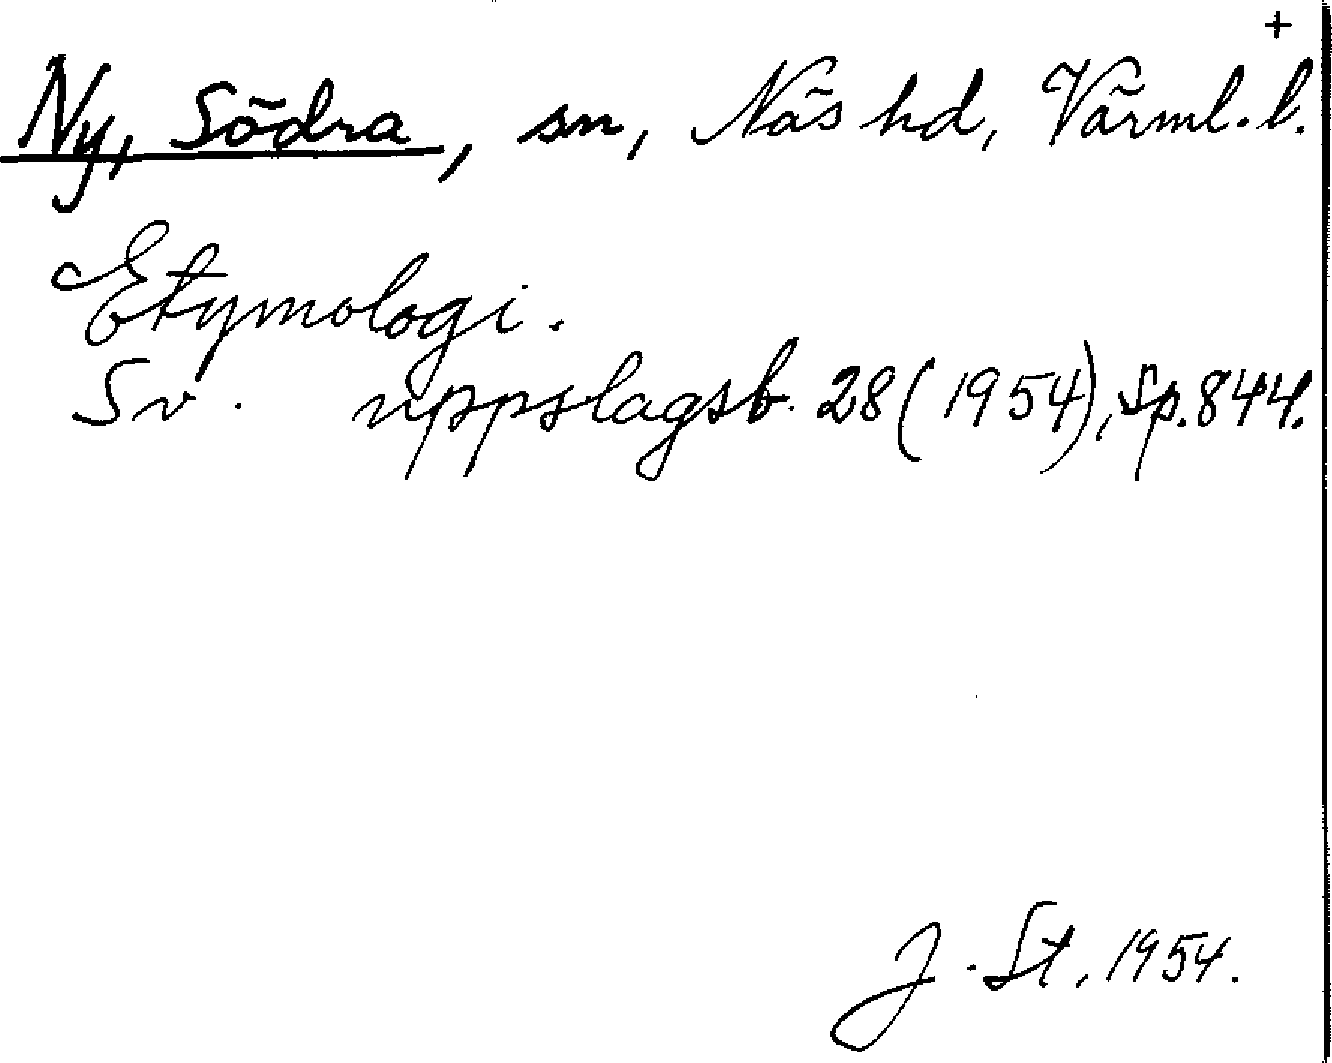 +
Ny, Södra, sn, Näs hd, Värml. l.
Etymologi.
Sv. uppslagsb. 28 (1954), Sp. 844.
J. St. 1954.